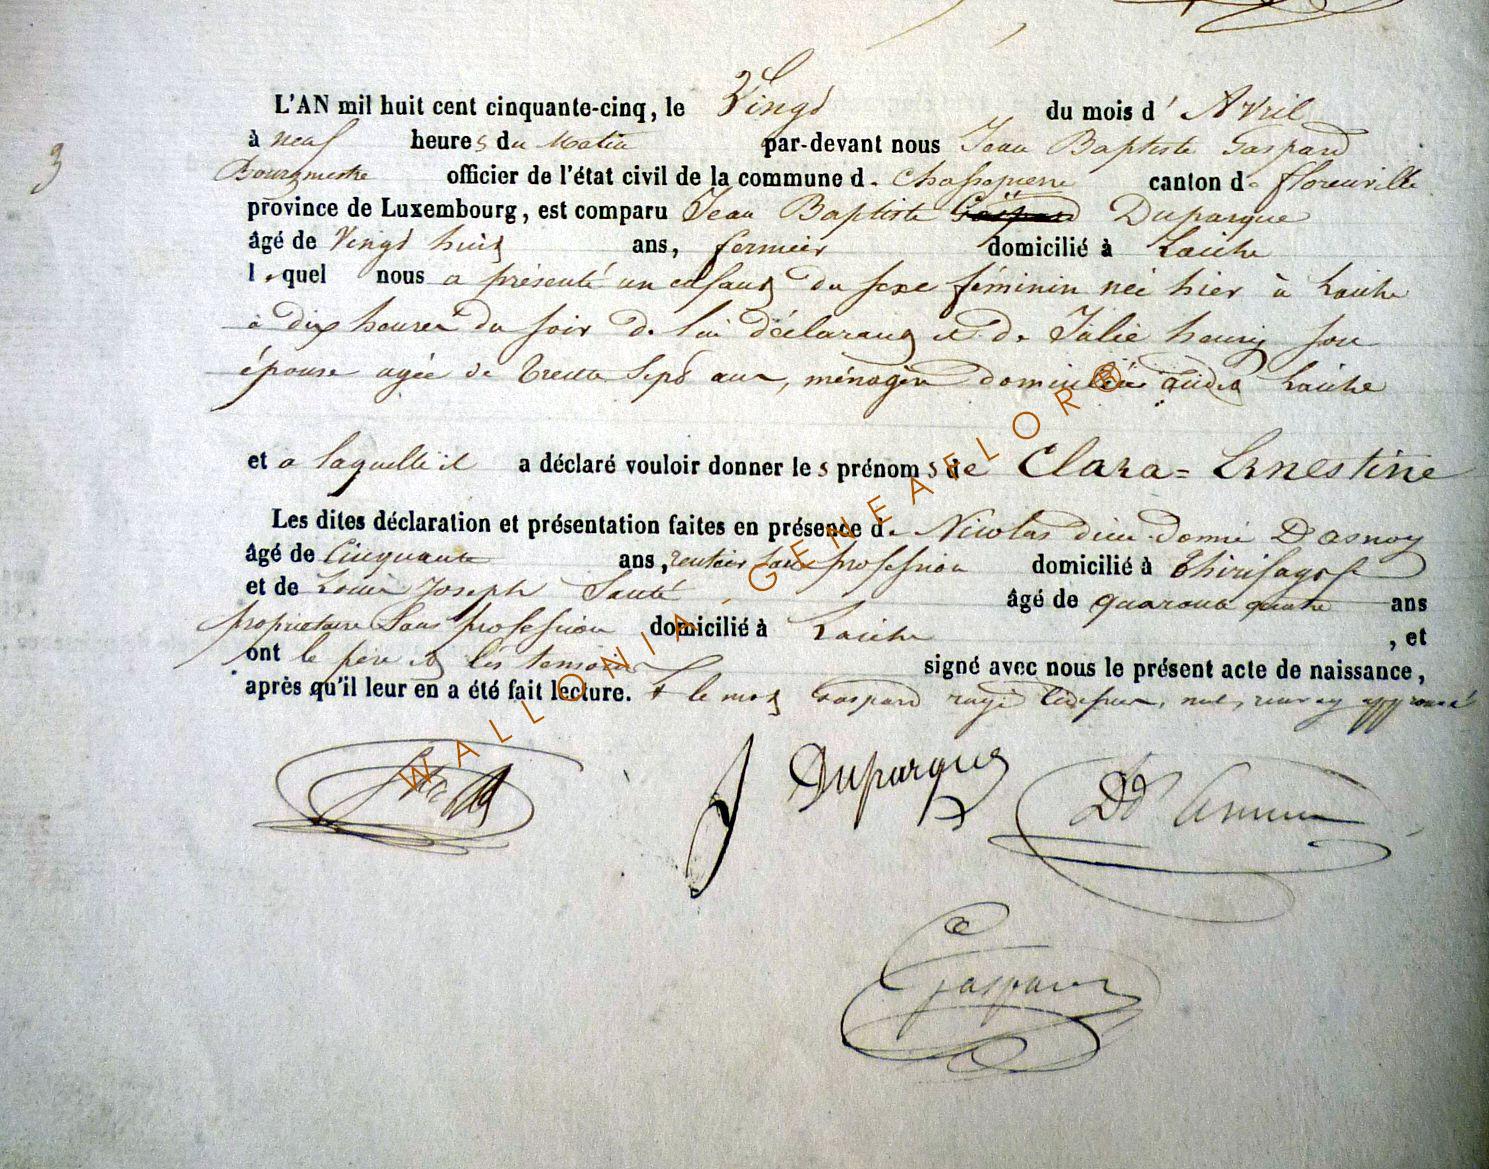 3
L'AN mil huit cent cinquante-cinq, le Vingt du mois d' Avril
à neuf heures du Matin par-devant nous Jean Baptiste Gaspard
Bourgmestre officier de l'état civil de la commune de Chassepierre canton de florenville
province de Luxembourg, est comparu Jean Baptiste Gaspard Duparque
âgé de Vingt huit ans, fermier domicilié à Laiche
lequel nous a présenté un enfant du sexe féminin née hier à Laiche
à dix heures du soir de lui déclarant et de Julie henry son
épouse agée de trente Sept ans, ménagère domiciliée audit Laiche
et a laquelle il a déclaré vouloir donner les prénoms de Clara = Ernestine
Les dites déclaration et présentation faites en présence de Nicolas dieu-donné Dasnoy
âgé de Cinquante ans, rentier sans profession domicilié à
et de Louis Joseph Santé âgé de quarante quatre ans
propriétaire Sans profession domicilié à Laiche, et
ont le père et les temoins signé avec nous le présent acte de naissance,
après qu'il leur en a été fait lecture. + le mot Gaspard rayé nul, approuvé
J Duparque
Gaspard
WALLONIA GENEAFLOR®